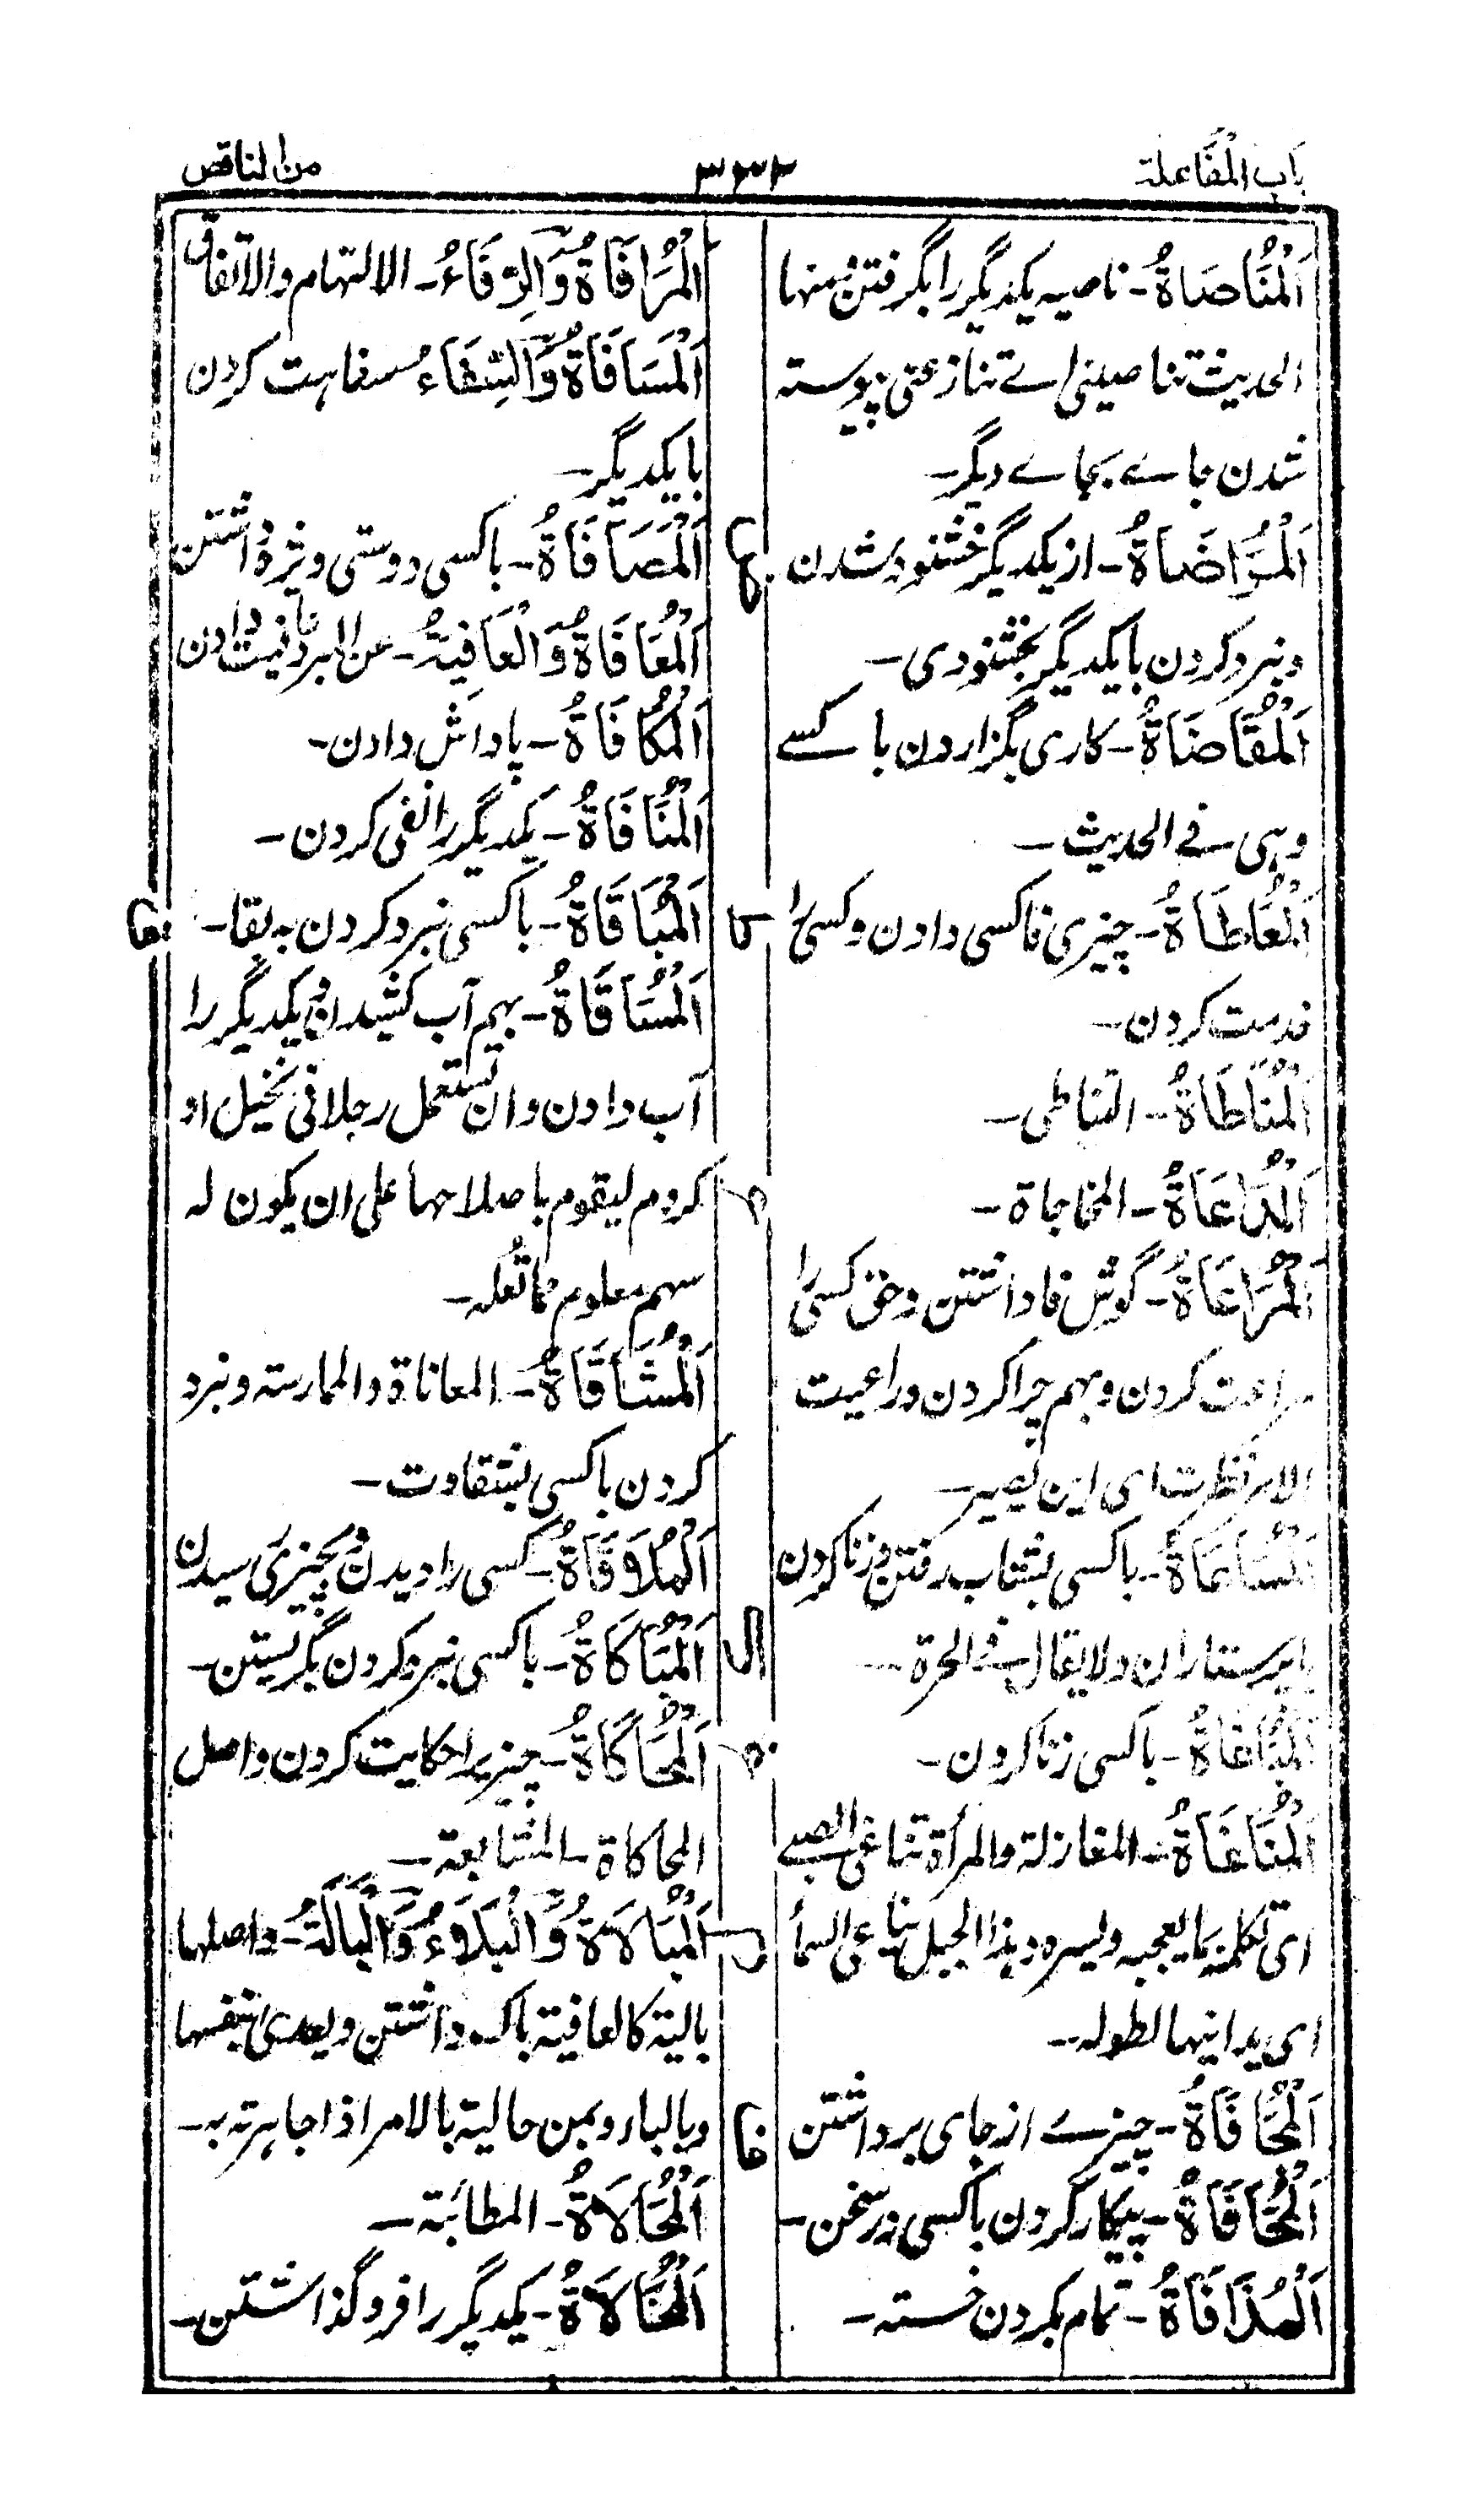 باب المفاعلة
۳۶۳
من الناقص
اَلْمُنَاصَاةُ ـ ناصیه یکدیگر را بگرفتن ومنها
الحدیث تناصینی اے تنازعنی و پیوسته
شدن جاے بجاے دیگر ـ
اَلْمُرَاضَاةُ ـ از یکدیگر خشنود شدن
و نبرد کردن با یکدیگر بخشنودی ـ
اَلْمُقَاضَاةُ ـ کاری بگزاردن با کسے
وهی فے الحدیث ـ
اَلْمُعَاطَاةُ ـ چیزی فاکسی دادن و کسی را
خدمت کردن ـ
اَلْمُنَاطَاةُ ـ التناطی ـ
اَلْمُدَاعَاةُ ـ المحاجاة ـ
اَلْمُرَاعَاةُ ـ گوش فاداشتن و حق کسی را
مراعت کردن و بهم چرا کردن وراعیت
الامر نظرت ای این یصیر ـ
اَلْمُسَاعَاةُ ـ باکسی بشتاب رفتن و زنا کردن
با پرستاران ولا یقال فے الحرة ـ
اَلْمُبَاغَاةُ ـ باکسی زنا کردن ـ
اَلْمُنَاغَاةُ ـ المغازلة والمرأة تناغی الصبے
ای تکلمه بما یعجبه ویسره وهذا الجبل یناغی السماٰ
ای یدانیها لطوله ـ
اَلْمُجَافَاةُ ـ چیزے از جای برداشتن
اَلْمُحَافَاةُ ـ پیکار کردن باکسی در سخن ـ
اَلْمُذَافَاةُ ـ تمام بکردن خسته ـ
اَلْمُرَافَاةُ وَالرِّفَاءُ ـ الالتهام والاتفاق
اَلْمُسَافَاةُ وَالسِّفَاءُ سفاهت کردن
با یکدیگر ـ
اَلْمُصَافَاةُ ـ باکسی دوستی ویژه داشتن
اَلْمُعَافَاةُ وَالْعَافِيَةُ ـ عن المبرد عافیت دادن
اَلْمُكَافَاةُ ـ پاداش دادن ـ
اَلْمُنَافَاةُ ـ یکدیگر را نفی کردن ـ
اَلْمُبَاقَاةُ ـ باکسی نبرد کردن به بقا ـ
اَلْمُسَاقَاةُ ـ بهم آب کشیدن و یکدیگر را
آب دادن و ان تستعمل رجلا فی نخیل او
کروم لیقوم باصلاحها علی ان یکون له
سهم معلوم مما تغله ـ
اَلْمُشَاقَاةُ ـ المعاناة والممارسته و نبرد
کردن باکسی بشقاوت ـ
اَلْمُلَاقَاةُ ـ کسی را دیدن و بچیزی رسیدن
اَلْمُبَاكَاةُ ـ باکسی نبرد کردن بگریستن ـ
اَلْمُحَاكَاةُ ـ چیزیرا حکایت کردن واصل
المحاکاة ـ المشابعة ـ
اَلْمُبَالَاةُ وَالْبِلَاءُ وَالْبَالَةُ ـ واصلها
بالیة کالعافیة باک داشتن و یعدی بنفسها
وبالباء وبمن حالیة بالامر اذا جاهرته به ـ
اَلْمُحَالَاةُ ـ المطائبة ـ
اَلْمُخَالَاةُ ـ یکدیگر را فروگذاشتن ـ